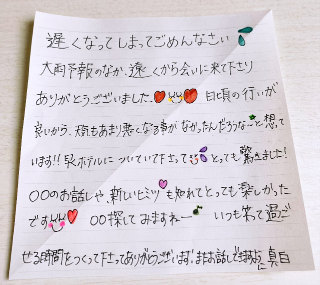 遅くなってしまってごめんなさい
大雨予報のなか、遠くから会いに来て下さり
ありがとうございました 日頃の行いが
良いから、天気もあまり悪くなる事がなかったんだろうなーと想って
います!!早くホテルについていて下さって とっても驚きました!
〇〇のお話しや、新しいヒミツも知れてとっても楽しかった
です 〇〇探してみますねー いつも笑って過ご
せる時間をつくって下さってありがとうございます!またお話しできますように 真白